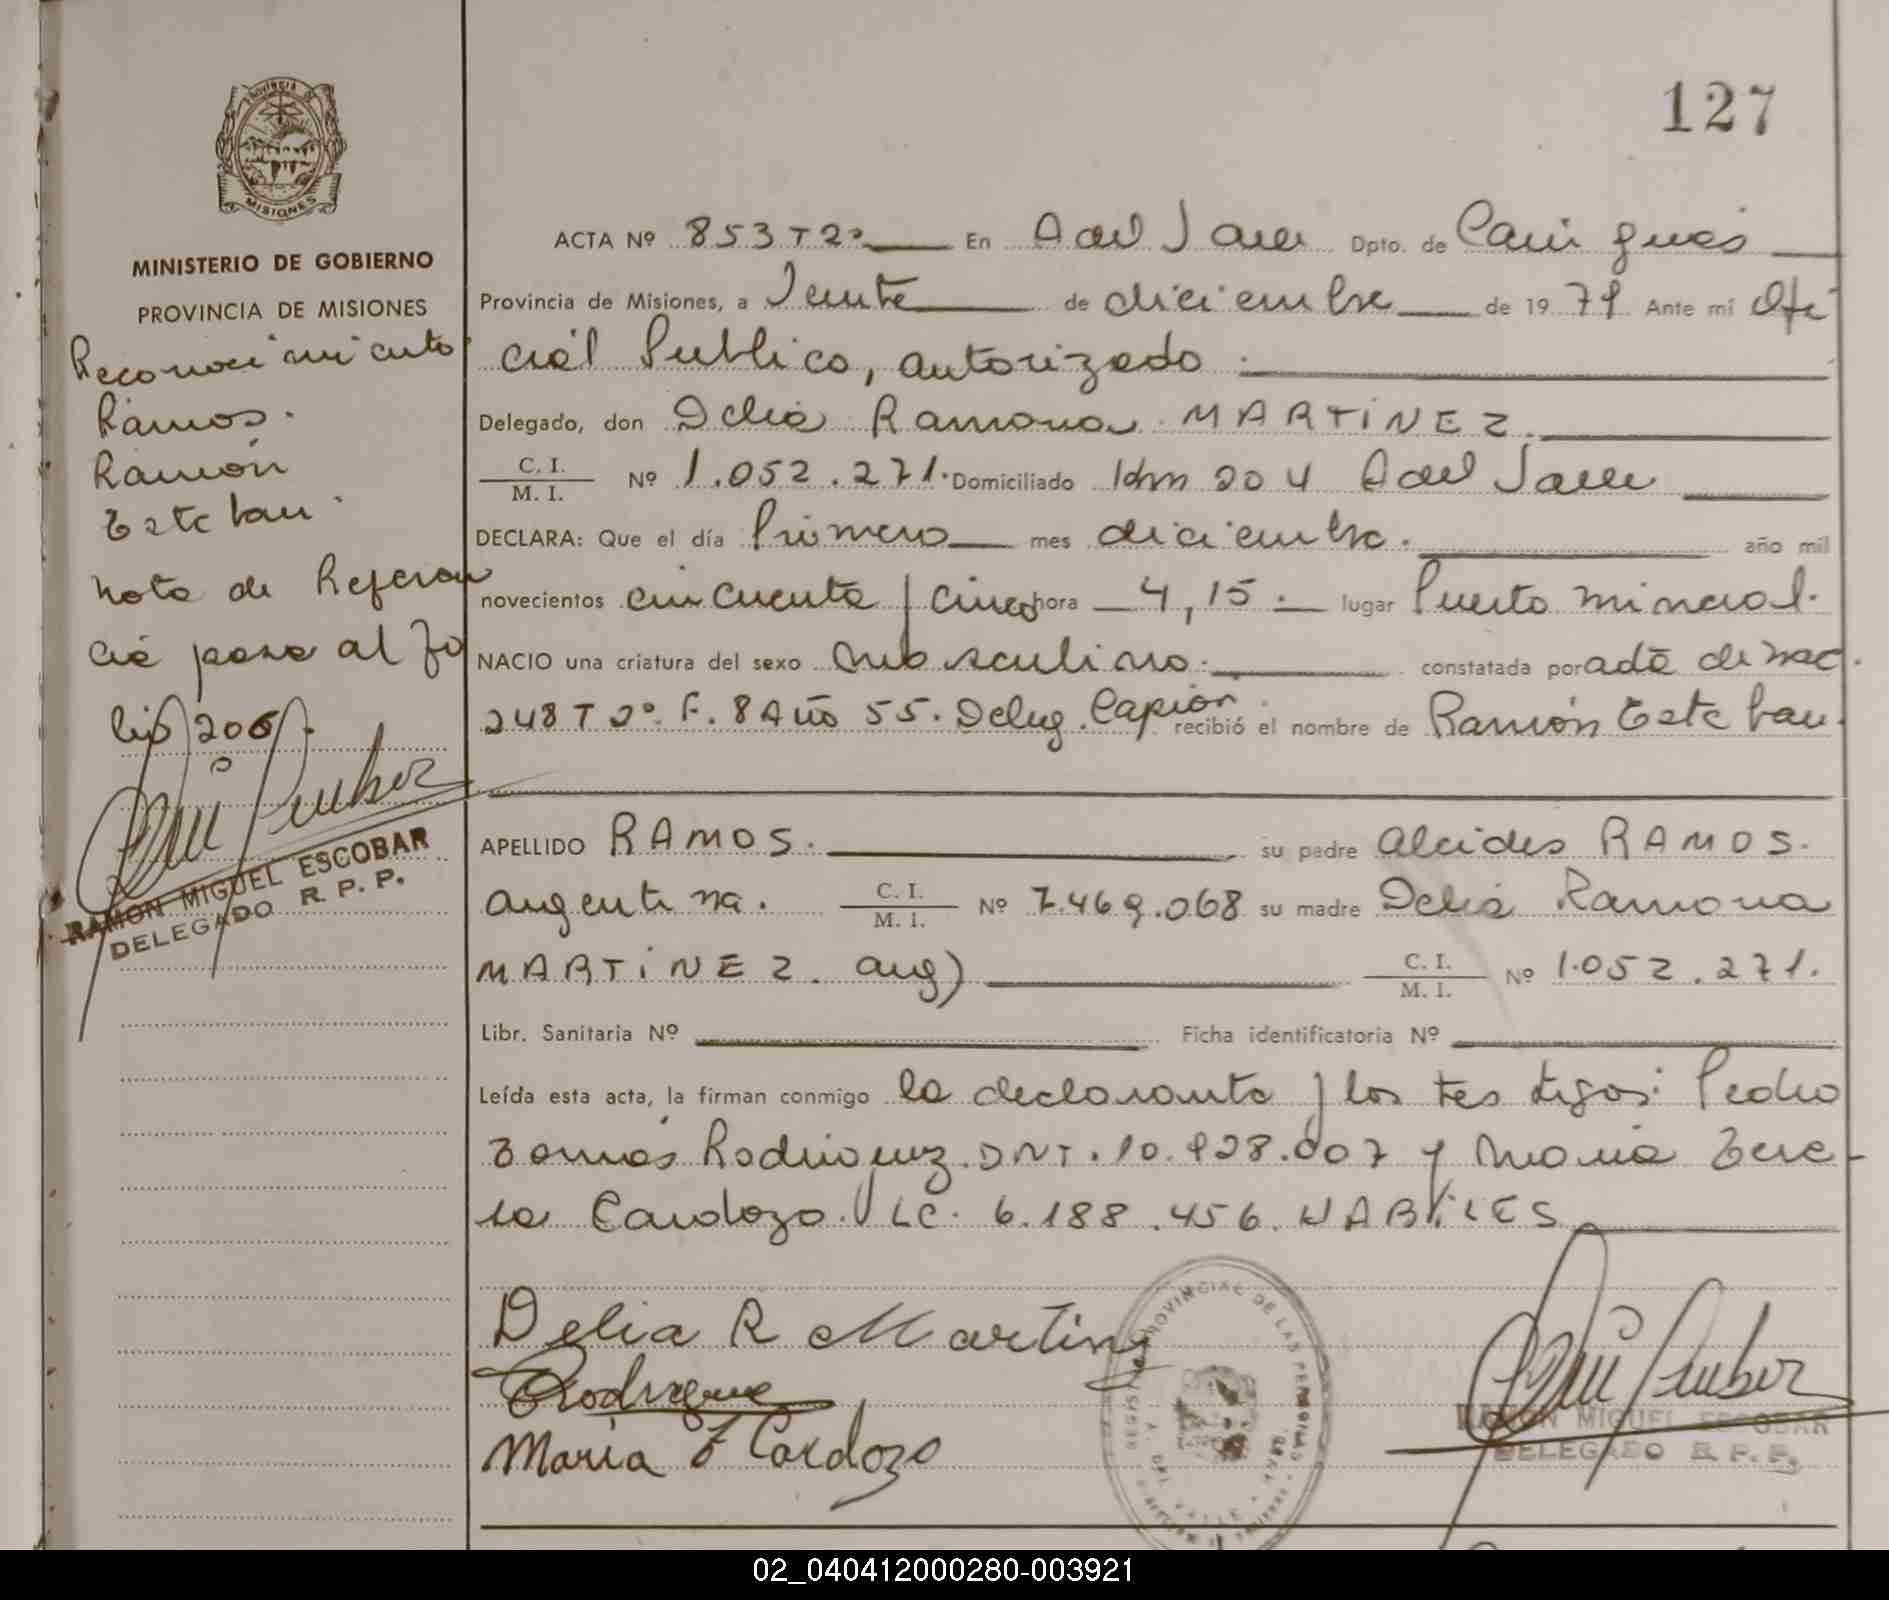 127
PROVINCIA DE
MISIONES
MINISTERIO DE GOBIERNO
PROVINCIA DE MISIONES
Reconocimiento
Ramos.
Ramón
Esteban.
Nota de Referen
cia pasa al fo
lio 206.
RAMON MIGUEL ESCOBAR
DELEGADO R. P. P.
ACTA Nº 853 T 2º En A del Valle Dpto. de Cainguás
Provincia de Misiones, a Veinte de diciembre de 1979 Ante mí Ofi
cial Público, autorizado.
Delegado, don Delia Ramona MARTiNEZ.
C. I. / M. I. Nº 1.052.271. Domiciliado Km 204 A del Valle
DECLARA: Que el día Primero mes diciembre. año mil
novecientos cincuenta y cinco hora 4,15. lugar Puerto mineral.
NACIO una criatura del sexo masculino. constatada por acta de nac.
248 T 2º. F. 8 Año 55. Deleg. Capiov. recibió el nombre de Ramón Esteban.
APELLIDO RAMOS. su padre Alcides RAMOS.
argentina. C. I. / M. I. Nº 7.469.068 su madre Delia Ramona
MARTiNEZ. arg) C. I. / M. I. Nº 1.052.271.
Libr. Sanitaria Nº Ficha identificatoria Nº
Leída esta acta, la firman conmigo la declarante y los testigos: Pedro
Tomás Rodriguez. DNI. 10.928.007 y María Tere-
sa Cardozo. LC. 6.188.456. HABiLES
Delia R Martinez
Rodrigue
María T Cardozo
PROVINCIAL DE LAS PERSONAS
RAMON MIGUEL ESCOBAR
DELEGADO R. P. P.
02_040412000280-003921